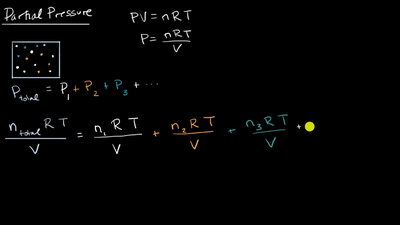 Partial Pressure
PV = nRT
P = nRT/V
P_total = P₁ + P₂ + P₃ + ...
n_total RT/V = n₁RT/V + n₂RT/V + n₃RT/V +